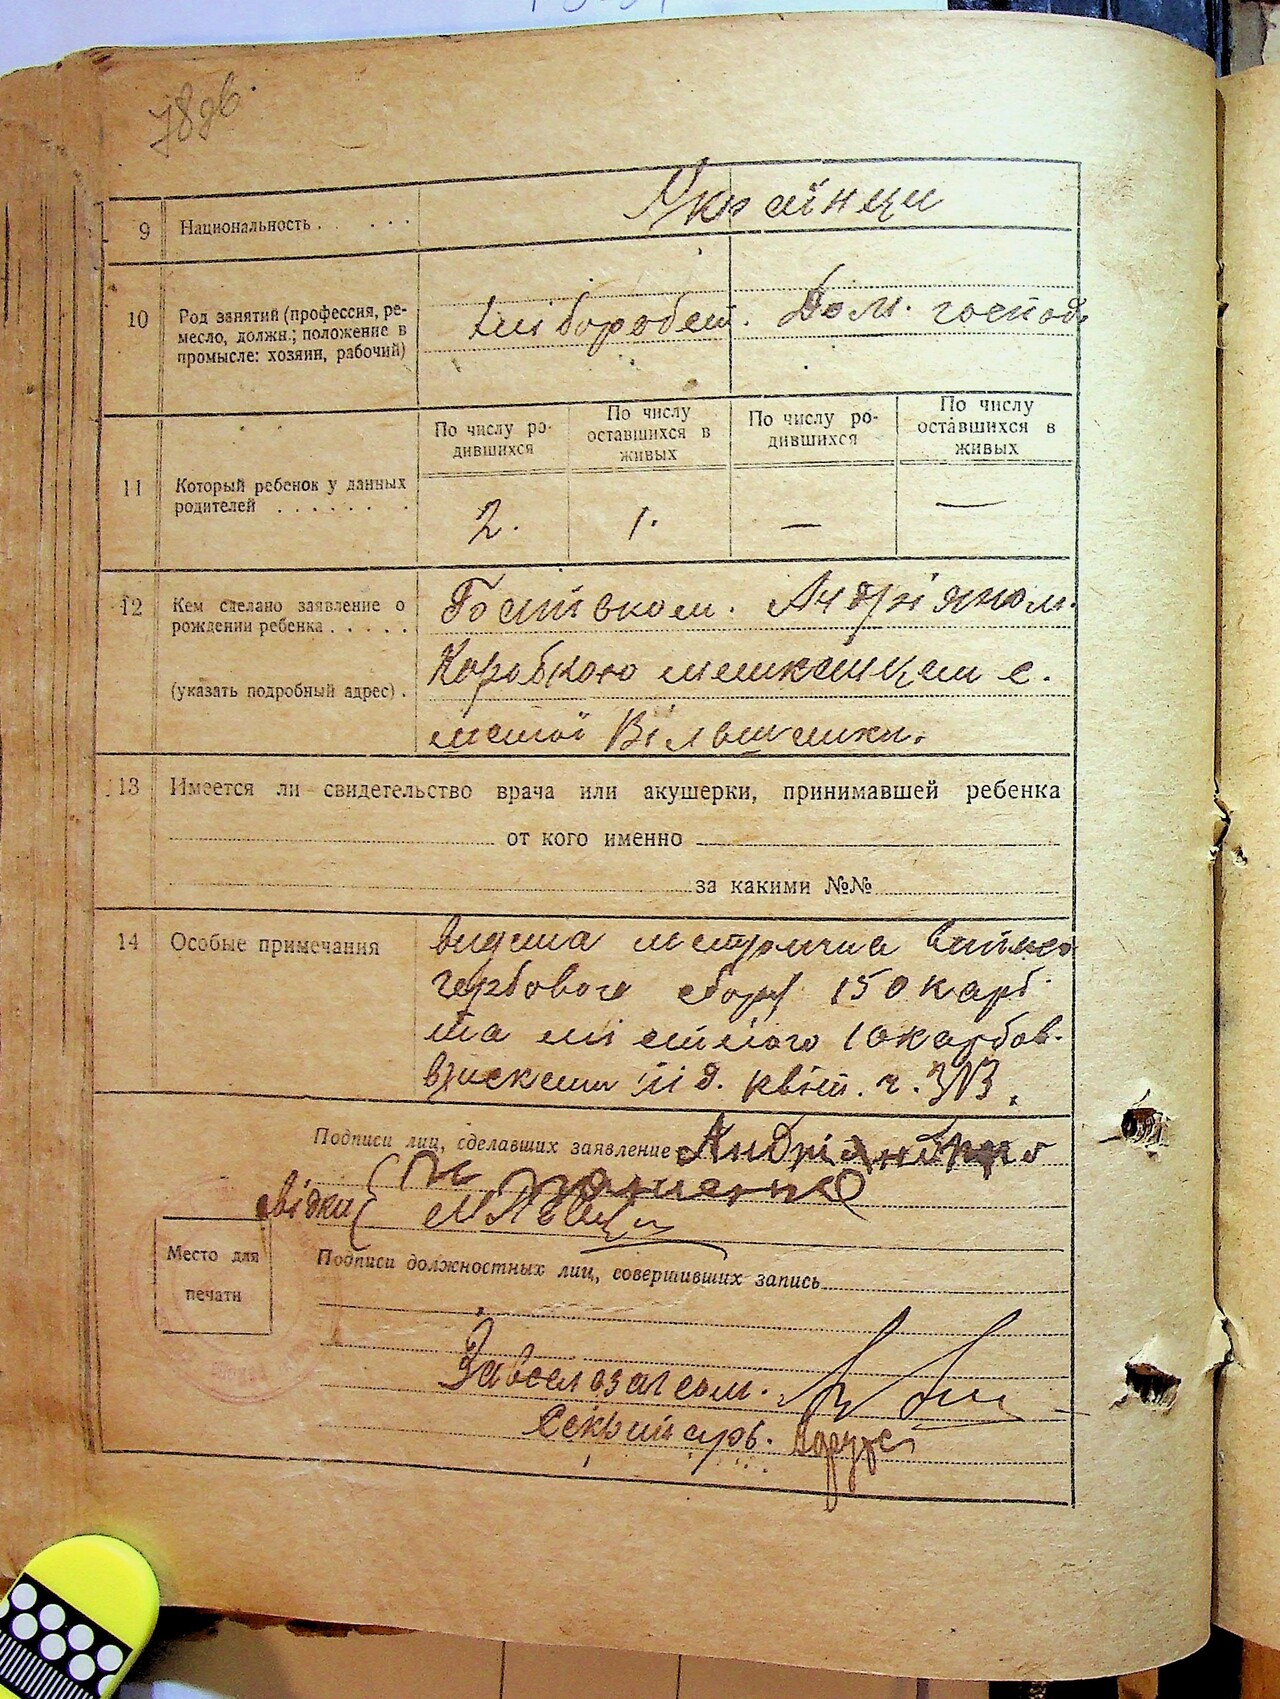 9 Национальность . . . . Українци
10 Род занятий (профессия, ре-
месло, должн.; положение в
промысле: хозяин, рабочий)
хліборобст. Дом. господ.
11 Который ребенок у данных
родителей . . . . . . .
По числу ро-
дившихся
По числу
оставшихся в
живых
По числу ро-
дившихся
По числу
оставшихся в
живых
2. 1. — —
12 Кем сделано заявление о
рождении ребенка . . . . .
(указать подробный адрес) .
Андріяном
Коробкою мешканцем с.
Вільшанки.
13 Имеется ли свидетельство врача или акушерки, принимавшей ребенка
от кого именно
за какими №№
14 Особые примечания
видана метрична
гербового збору 150 карб.
та містного 10 карбов.
взискани під. квіт. ч. 313.
Подписи лиц, сделавших заявление
свідки
Место для
печати
Подписи должностных лиц, совершивших запись
Завсел загсом.
Секритарь.